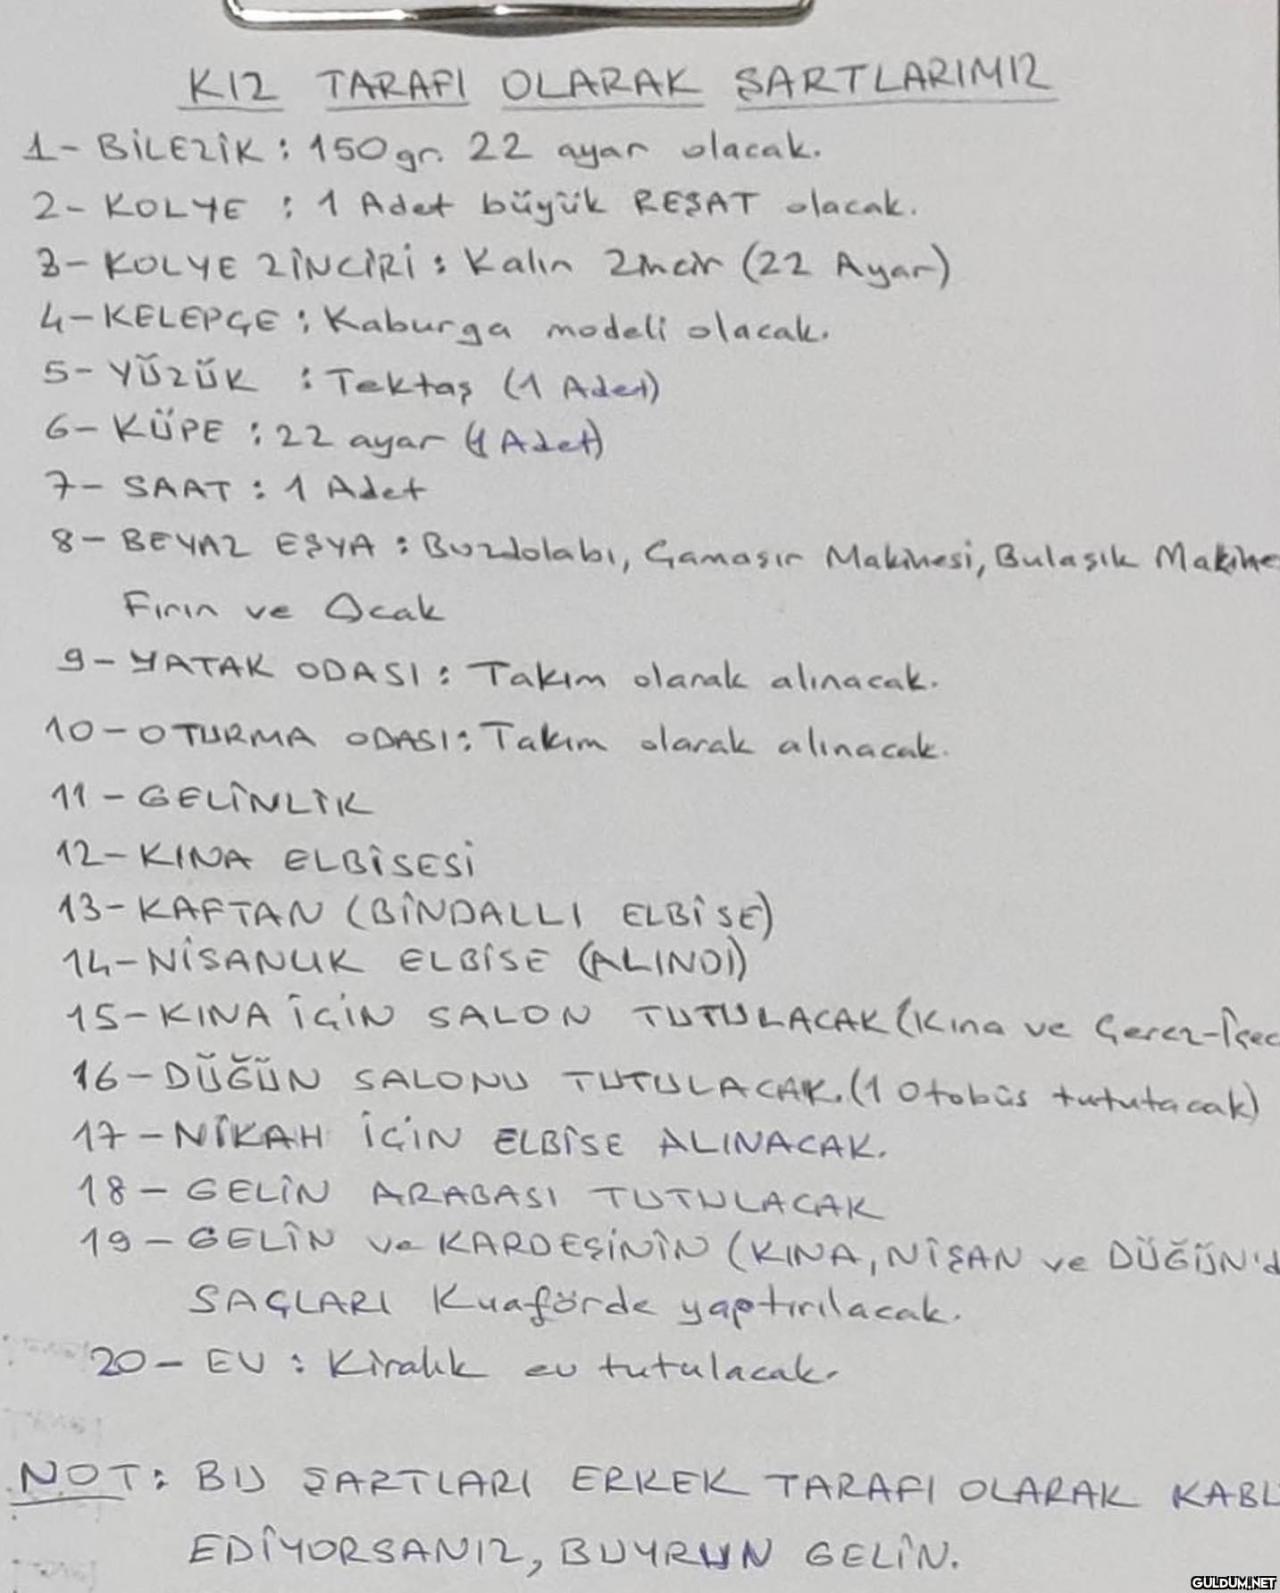 KIZ TARAFI OLARAK ŞARTLARIMIZ
1- BİLEZİK : 150 gr. 22 ayar olacak.
2- KOLYE : 1 Adet büyük REŞAT olacak.
3- KOLYE ZİNCİRİ : Kalın Zincir (22 Ayar)
4- KELEPÇE : Kaburga modeli olacak.
5- YÜZÜK : Tektaş (1 Adet)
6- KÜPE : 22 ayar (1 Adet)
7- SAAT : 1 Adet
8- BEYAZ EŞYA : Buzdolabı, Çamaşır Makinesi, Bulaşık Makine
Fırın ve Ocak
9- YATAK ODASI : Takım olarak alınacak.
10- OTURMA ODASI : Takım olarak alınacak.
11- GELİNLİK
12- KINA ELBİSESİ
13- KAFTAN (BİNDALLI ELBİSE)
14- NİSANLIK ELBİSE (ALINDI)
15- KINA İÇİN SALON TUTULACAK (Kına ve Çerez-İçec
16- DÜĞÜN SALONU TUTULACAK. (1 Otobüs tututacak)
17- NİKAH İÇİN ELBİSE ALINACAK.
18- GELİN ARABASI TUTULACAK
19- GELİN ve KARDEŞİNİN (KINA, NİŞAN ve DÜĞÜN'd
SAÇLARI Kuaförde yaptırılacak.
20- EV : Kiralık ev tutulacak.
NOT : BU ŞARTLARI ERKEK TARAFI OLARAK KABU
EDİYORSANIZ, BUYRUN GELİN.
GULDUM.NET